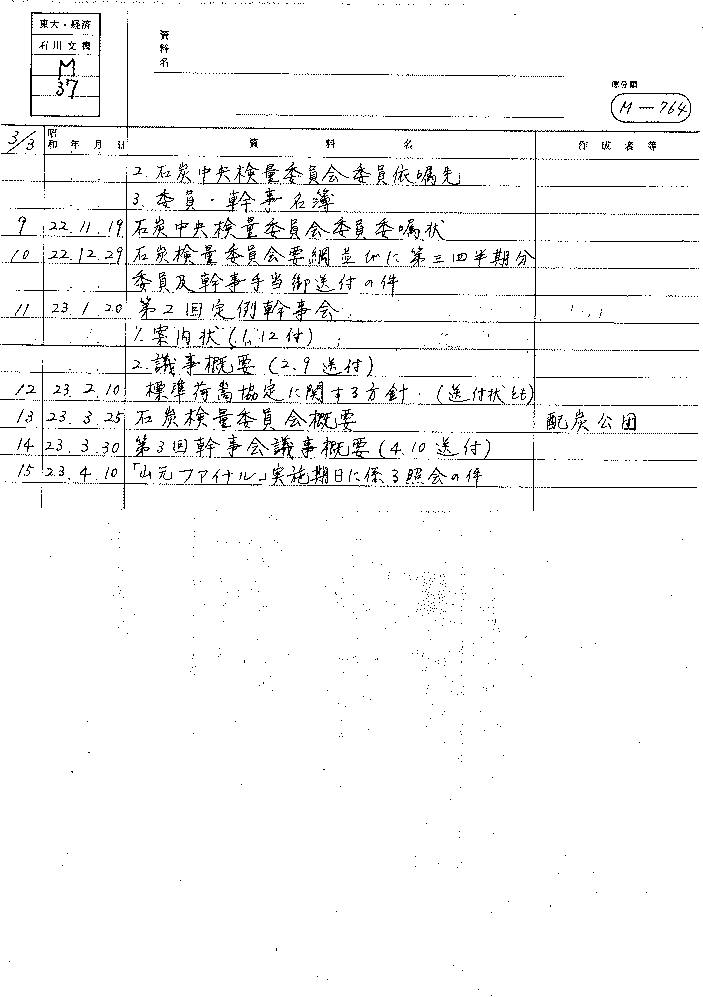 東大・経済
石川文書
M
37
資料名
原分類
M-764
3/3 昭和 年 月 日 資料名 作成者等
2. 石炭中央検量委員会委員依嘱先
3. 委員・幹事名簿
9 22.11.19 石炭中央検量委員会委員委嘱状
10 22.12.29 石炭検量委員会要綱並びに第三四半期分
委員及幹事手当御送付の件
11 23.1.20 第2回定例幹事会
1. 案内状(1.12付)
2. 議事概要(2.9送付)
12 23.2.10 標準荷嵩協定に関する方針.(送付状とも)
13 23.3.25 石炭検量委員会概要 配炭公団
14 23.3.30 第3回幹事会議事概要(4.10送付)
15 23.4.10 「山元ファイナル」実施期日に係る照会の件